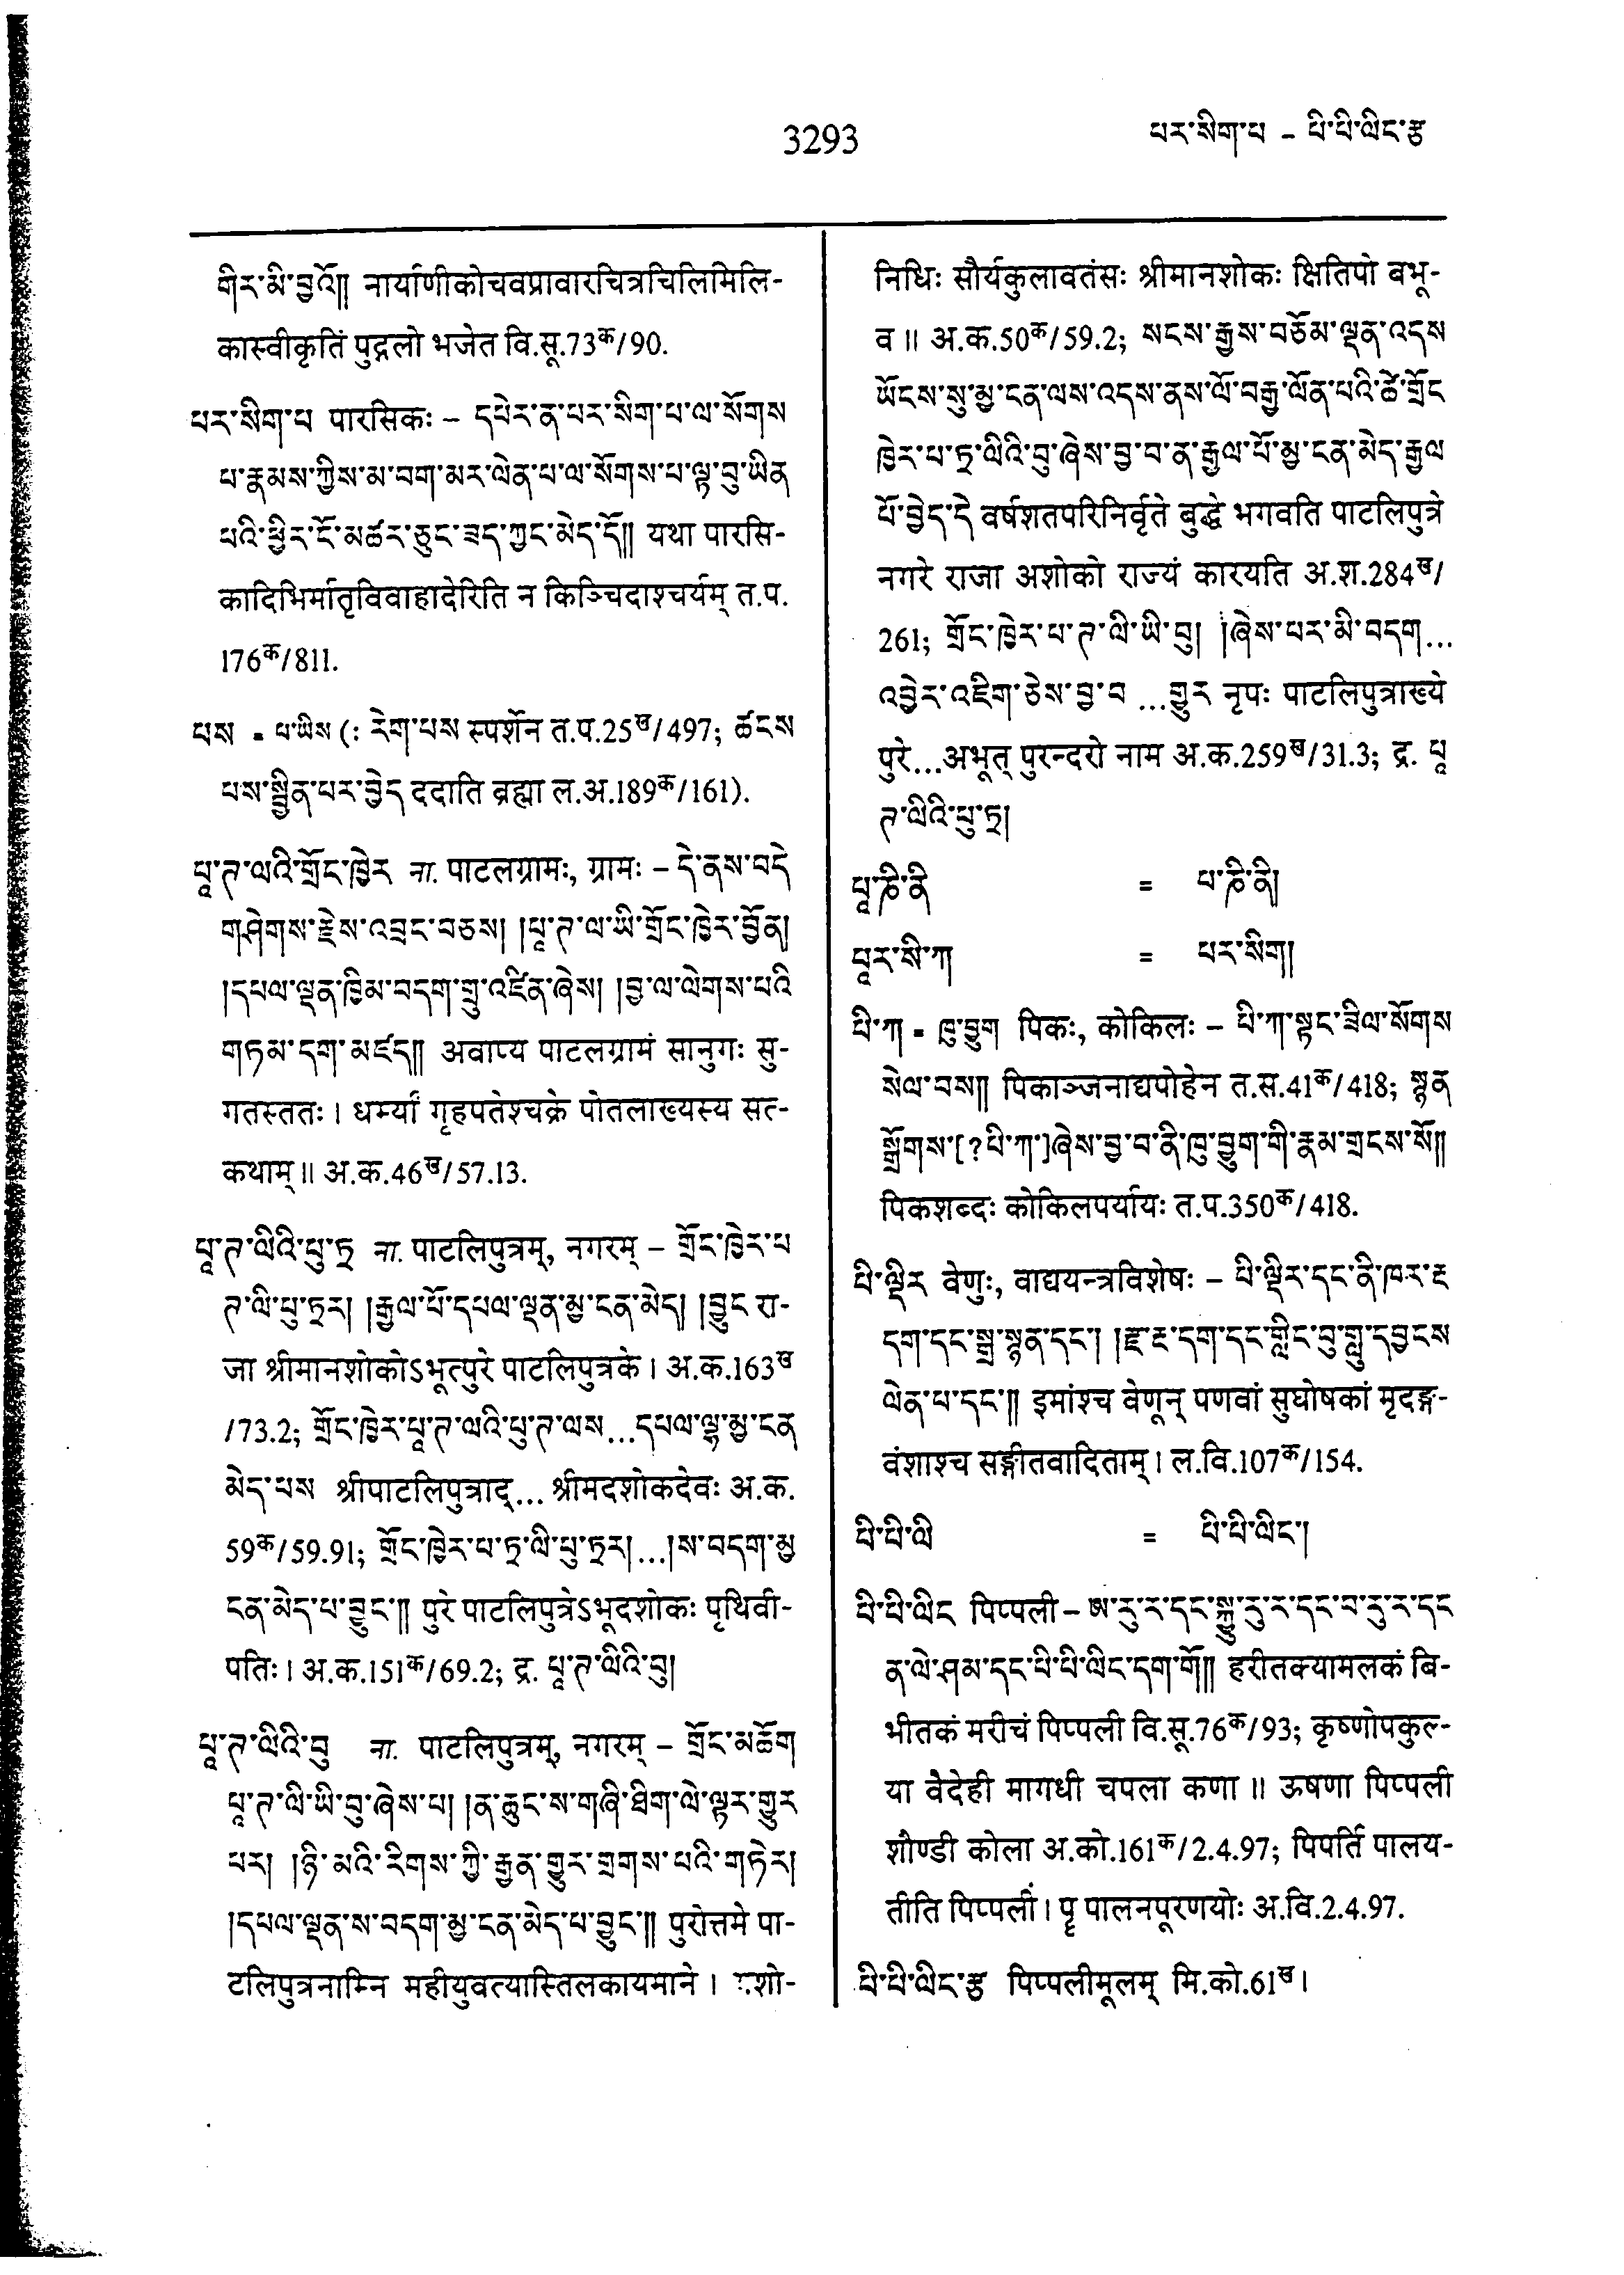 3293
པར་སིག་པ – པི་པི་ལིང་རྩ
གིར་མི་བྱའོ།། नार्याणीकोचवप्रावारचित्रचिलिमिलि-
कास्वीकृतिं पुद्गलो भजेत वि.सू.73क/90.
པར་སིག་པ पारसिकः – དཔེར་ན་པར་སིག་པ་ལ་སོགས
པ་རྣམས་ཀྱིས་མ་བག་མར་ལེན་པ་ལ་སོགས་པ་ལྟ་བུ་ཡིན
པའི་ཕྱིར་ངོ་མཚར་ཅུང་ཟད་ཀྱང་མེད་དོ།། यथा पारसि-
कादिभिर्मातृविवाहादेरिति न किञ्चिदाश्चर्यम् त.प.
176क/811.
པས = པ་ཡིས (: རེག་པས स्पर्शेन त.प.25ख/497; ཚངས
པས་སྦྱིན་པར་བྱེད ददाति ब्रह्मा ल.अ.189क/161).
པཱ་ཊ་ལའི་གྲོང་ཁྱེར ना. पाटलग्रामः, ग्रामः – དེ་ནས་བདེ
གཤེགས་རྗེས་འབྲང་བཅས། །པཱ་ཊ་ལ་ཡི་གྲོང་ཁྱེར་བྱོན།
།དཔལ་ལྡན་ཁྱིམ་བདག་གྲུ་འཛིན་ཞེས། །བྱ་ལ་ལེགས་པའི
གཏམ་དག་མཛད།། अवाप्य पाटलग्रामं सानुगः सु-
गतस्ततः । धर्म्यां गृहपतेश्चक्रे पोतलाख्यस्य सत्-
कथाम् ॥ अ.क.46ख/57.13.
པཱ་ཊ་ལིའི་པུ་ཏྲ ना. पाटलिपुत्रम्, नगरम् – གྲོང་ཁྱེར་པ
ཊ་ལི་པུ་ཏྲར། །རྒྱལ་པོ་དཔལ་ལྡན་མྱ་ངན་མེད། །བྱུང रा-
जा श्रीमानशोकोऽभूत्पुरे पाटलिपुत्रके । अ.क.163ख
/73.2; གྲོང་ཁྱེར་པཱ་ཊ་ལའི་པུ་ཊ་ལས...དཔལ་ལྷ་མྱ་ངན
མེད་པས श्रीपाटलिपुत्राद्... श्रीमदशोकदेवः अ.क.
59क/59.91; གྲོང་ཁྱེར་པ་ཏྲ་ལི་པུ་ཏྲར།...།ས་བདག་མྱ
ངན་མེད་པ་བྱུང་།། पुरे पाटलिपुत्रेऽभूदशोकः पृथिवी-
पतिः । अ.क.151क/69.2; द्र. པཱ་ཊ་ལིའི་བུ།
པཱ་ཊ་ལིའི་བུ ना. पाटलिपुत्रम्, नगरम् – གྲོང་མཆོག
པཱ་ཊ་ལི་ཡི་བུ་ཞེས་པ། །ན་ཆུང་ས་གཞི་ཐིག་ལེ་ལྟར་གྱུར
པར། །ཉི་མའི་རིགས་ཀྱི་རྒྱན་གྱུར་གྲགས་པའི་གཏེར།
།དཔལ་ལྡན་ས་བདག་མྱ་ངན་མེད་པ་བྱུང་།། पुरोत्तमे पा-
टलिपुत्रनाम्नि महीयुवत्यास्तिलकायमाने । यशो-
निधिः सौर्यकुलावतंसः श्रीमानशोकः क्षितिपो बभू-
व ॥ अ.क.50क/59.2; སངས་རྒྱས་བཅོམ་ལྡན་འདས
ཡོངས་སུ་མྱ་ངན་ལས་འདས་ནས་ལོ་བརྒྱ་ལོན་པའི་ཚེ་གྲོང
ཁྱེར་པ་ཏྲ་ལིའི་བུ་ཞེས་བྱ་བ་ན་རྒྱལ་པོ་མྱ་ངན་མེད་རྒྱལ
པོ་བྱེད་དེ वर्षशतपरिनिर्वृते बुद्धे भगवति पाटलिपुत्रे
नगरे राजा अशोको राज्यं कारयति अ.श.284ख/
261; གྲོང་ཁྱེར་པ་ཊ་ལི་ཡི་བུ། །ཞེས་པར་མི་བདག...
འབྱེར་འཇིག་ཅེས་བྱ་བ ...གྱུར नृपः पाटलिपुत्राख्ये
पुरे...अभूत् पुरन्दरो नाम अ.क.259ख/31.3; द्र. པཱ
ཊ་ལིའི་པུ་ཏྲ།
པཱ་ཎི་ནི = པ་ཎི་ནི།
པཱར་སི་ཀ = པར་སིག།
པི་ཀ = ཁུ་བྱུག पिकः, कोकिलः – པི་ཀ་སྟང་ཟིལ་སོགས
སེལ་བས།། पिकाञ्जनाद्यपोहेन त.स.41क/418; སྙན
སྒྲོགས་[?པི་ཀ་]ཞེས་བྱ་བ་ནི་ཁུ་བྱུག་གི་རྣམ་གྲངས་སོ།།
पिकशब्दः कोकिलपर्यायः त.प.350क/418.
པི་ལྡིར वेणुः, वाद्ययन्त्रविशेषः – པི་ལྡིར་དང་ནི་ཁར་རྔ
དག་དང་སྒྲ་སྙན་དང་། །རྫ་རྔ་དག་དང་གླིང་བུ་གླུ་དབྱངས
ལེན་པ་དང་།། इमांश्च वेणून् पणवां सुघोषकां मृदङ्ग-
वंशाश्च सङ्गीतवादिताम् । ल.वि.107क/154.
པི་པི་ལི = པི་པི་ལིང་།
པི་པི་ལིང पिप्पली – ཨ་རུ་ར་དང་སྐྱུ་རུ་ར་དང་བ་རུ་ར་དང
ན་ལེ་ཤམ་དང་པི་པི་ལིང་དག་གོ།། हरीतक्यामलकं बि-
भीतकं मरीचं पिप्पली वि.सू.76क/93; कृष्णोपकुल्-
या वैदेही मागधी चपला कणा ॥ ऊषणा पिप्पली
शौण्डी कोला अ.को.161क/2.4.97; पिपर्ति पालय-
तीति पिप्पली । पॄ पालनपूरणयोः अ.वि.2.4.97.
པི་པི་ལིང་རྩ पिप्पलीमूलम् मि.को.61ख ।